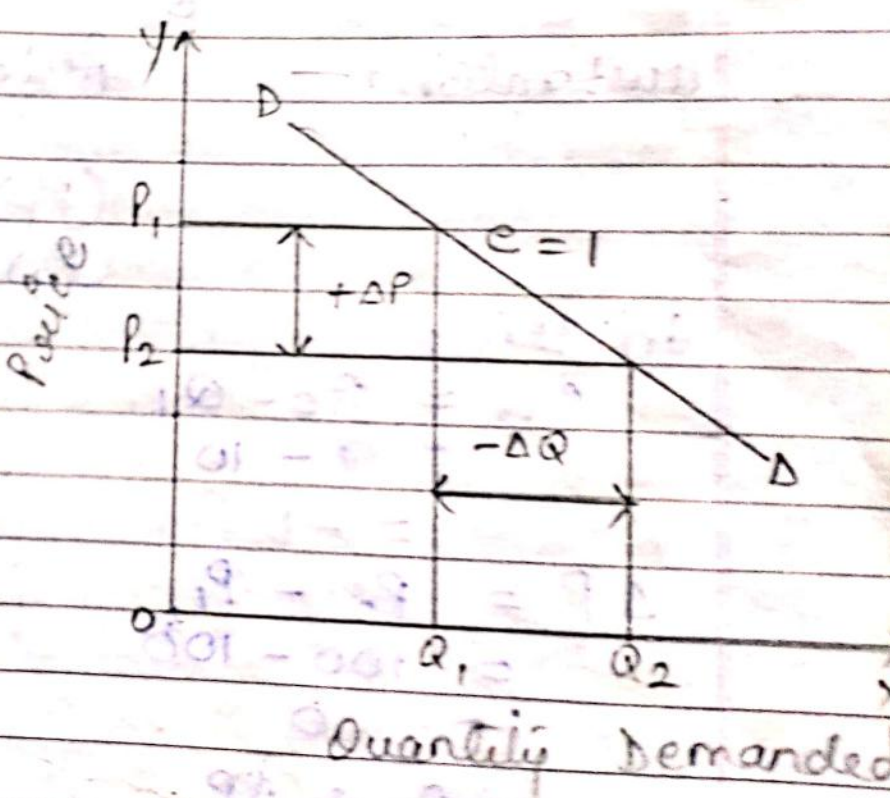 Y
D
P₁
e = 1
+ΔP
Price
P₂
-ΔQ
D
O
Q₁ Q₂
X
Quantity Demanded